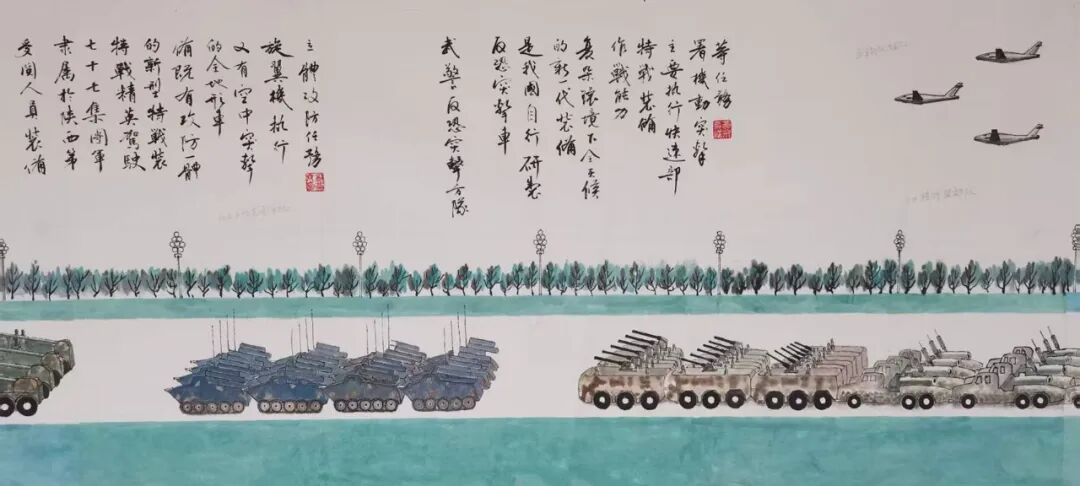 受閲人員装備
隶属於陕西第
七十七集團軍
特戰精英駕驶
的新型特戰装
備既有攻防一體
的全地形車
又有空中突擊
旋翼機执行
立體攻防任務
武警反恐突擊方隊
反恐突擊車
是我國自行研製
的新一代装備
复杂環境下全天候
作戰能力
特戰装備
主要执行快速部
署機動突擊
等任務